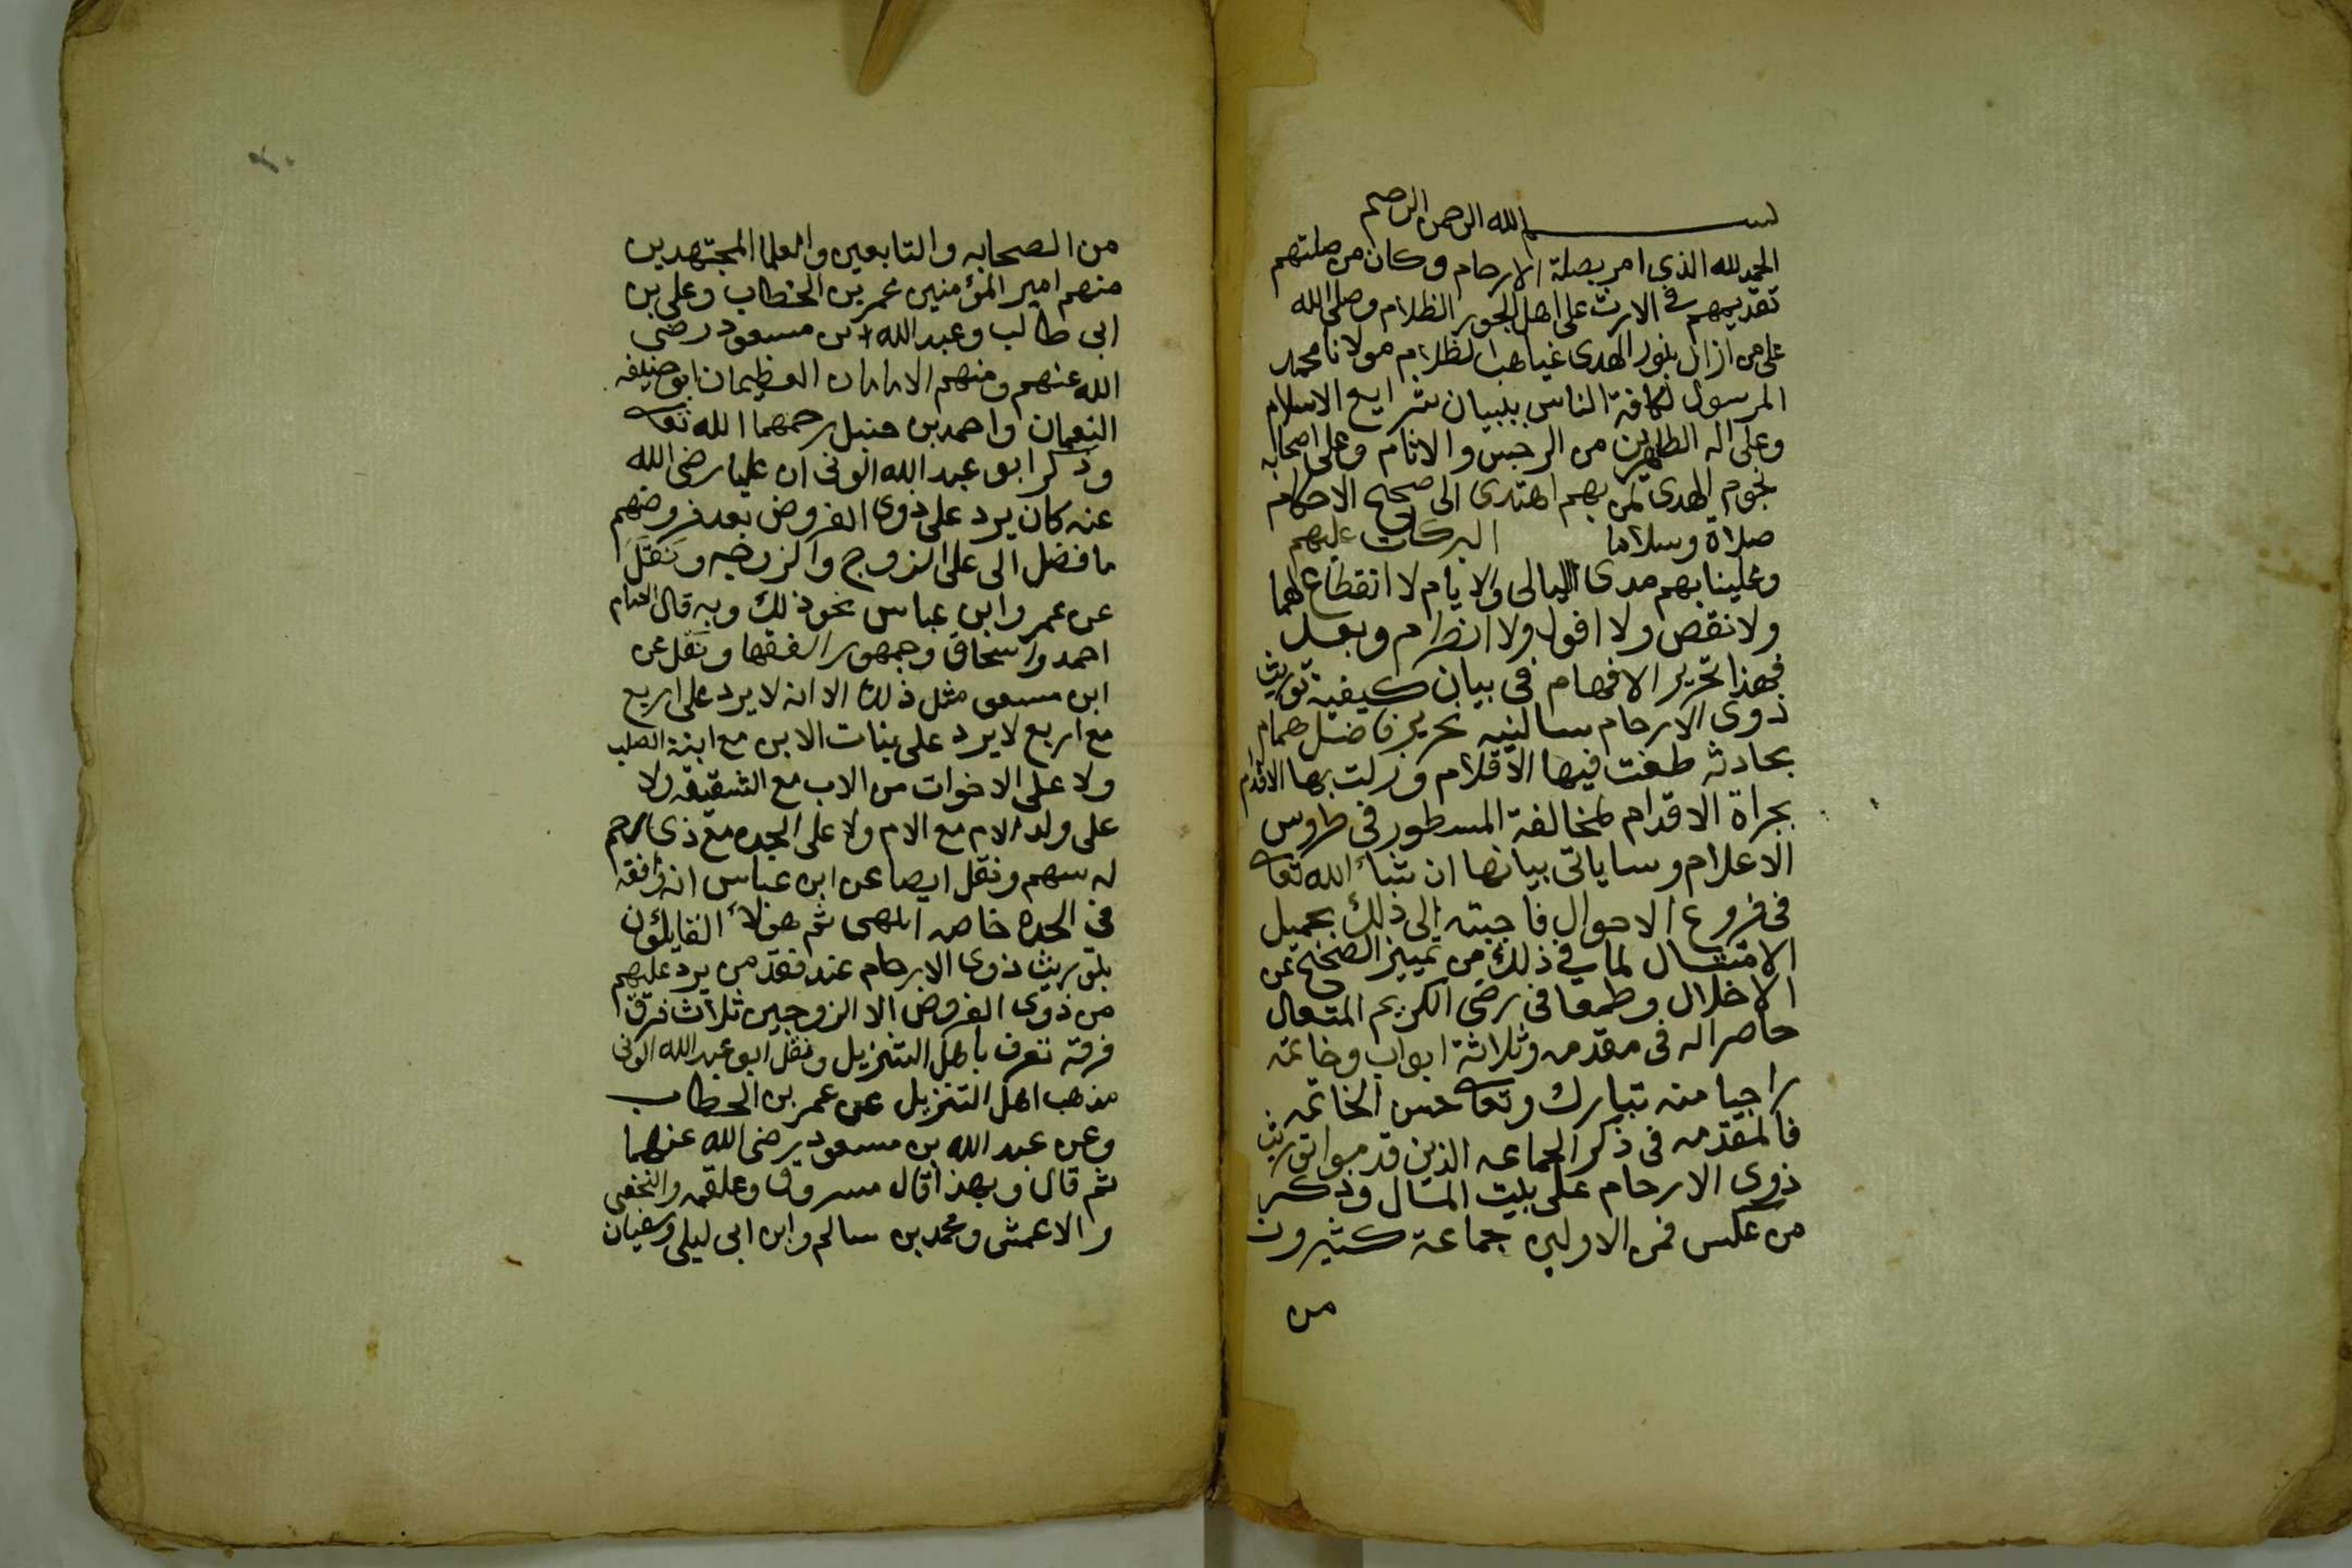 بسم الله الرحمن الرحيم
الحمد لله الذى امر بصلة الارحام وكان من صلتهم
تقديمهم فى الارث على اهل الجور الظلام وصلى الله
على من ازال بنور الهدى غياهب الظلام مولانا محمد
المرسول لكافة الناس ببيان شرايع الاسلام
وعلى اله الطاهرين من الرجس والاثام وعلى اصحابه
نجوم الهدى لمن بهم اهتدى الى صحيح الاحكام
صلاة وسلاما البركات عليهم
وعلينا بهم مدى الليالى والايام لا انقطاع لهما
ولا نقص ولا افول ولا انظرام وبعد
فهذا تحرير الافهام فى بيان كيفية توريث
ذوى الارحام سالنيه نحرير فاضل همام
بحادثه طغت فيها الاقلام وزلت بها الاقدام
بجراة الاقدام لمخالفة المسطور فى طروس
الاعلام وساياتى بيانها ان شاء الله تعا
فى فروع الاحوال فاجبته الى ذلك بجميل
الامتثال لما فى ذلك من تمييز الصحيح عن
الاخلال وطمعا فى رضى الكريم المتعال
حاصرا له فى مقدمه وثلاثة ابواب وخاتمه
راجيا منه تبارك وتعا حسن الخاتمه
فالمقدمه فى ذكر الجماعه الذين قدموا توريث
ذوى الارحام على بيت المال وذكر
من عكس فمن الاولين جماعة كثيرون
من
من الصحابه والتابعين والعلما المجتهدين
منهم امير المؤمنين عمر بن الخطاب وعلى بن
ابى طالب وعبد الله ابن مسعود رضى
الله عنهم ومنهم الامامان العظيمان ابو حنيفه
النعمان واحمد بن حنبل رحمهما الله تعا
وذكر ابو عبد الله الونى ان عليا رضى الله
عنه كان يرد على ذوى الفروض بعد فروضهم
ما فضل الى على الزوج والزوجه ونقل
عن عمر وابن عباس نحو ذلك وبه قال الامام
احمد واسحاق وجمهور الفقها ونقل عن
ابن مسعو مثل ذلك الا انه لا يرد على اربع
مع اربع لا يرد على بنات الابن مع ابنة الصلب
ولا على الاخوات من الاب مع الشقيقه ولا
على ولد الام مع الام ولا على الجده مع ذى رحم
له سهم ونقل ايضا عن ابن عباس انه وافقه
فى الجده خاصه انتهى ثم هولاء القايلون
بتوريث ذوى الارحام عند فقد من يرد عليهم
من ذوى الفروض الا الزوجين ثلاث فرق
فرقه تعرف باهل التنزيل ونقل ابو عبد الله الونى
مذهب اهل التنزيل عن عمر بن الخطاب
وعن عبد الله بن مسعود رضى الله عنهما
ثم قال وبهذا قال مسروق وعلقمه والنخعى
والاعمش ومحمد بن سالم وابن ابى ليلى وسفيان